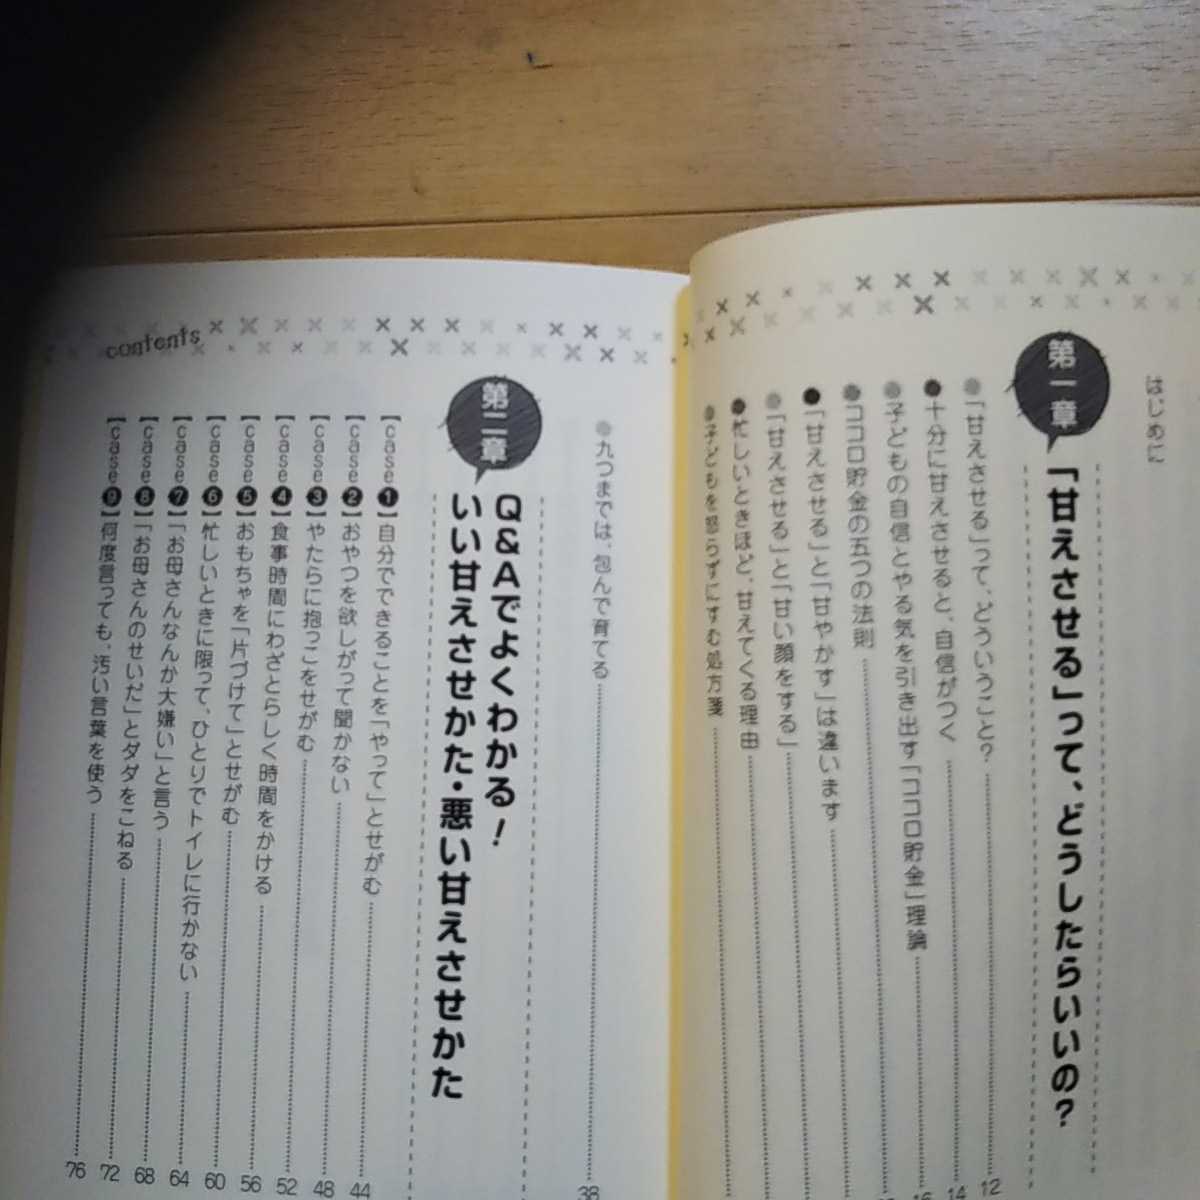 はじめに
第一章
「甘えさせる」って、どうしたらいいの？
●「甘えさせる」って、どういうこと？ 12
●十分に甘えさせると、自信がつく 14
●子どもの自信とやる気を引き出す「ココロ貯金」理論 16
●ココロ貯金の五つの法則
●「甘えさせる」と「甘やかす」は違います
●「甘えさせる」と「甘い顔をする」
●忙しいときほど、甘えてくる理由
●子どもを怒らずにすむ処方箋
contents
●九つまでは、包んで育てる 38
第二章
Q&Aでよくわかる！
いい甘えさせかた・悪い甘えさせかた
【case❶】自分でできることを「やって」とせがむ 44
【case❷】おやつを欲しがって聞かない 48
【case❸】やたらに抱っこをせがむ 52
【case❹】食事時間にわざとらしく時間をかける 56
【case❺】おもちゃを「片づけて」とせがむ 60
【case❻】忙しいときに限って、ひとりでトイレに行かない 64
【case❼】「お母さんなんか大嫌い」と言う 68
【case❽】「お母さんのせいだ」とダダをこねる 72
【case❾】何度言っても、汚い言葉を使う 76